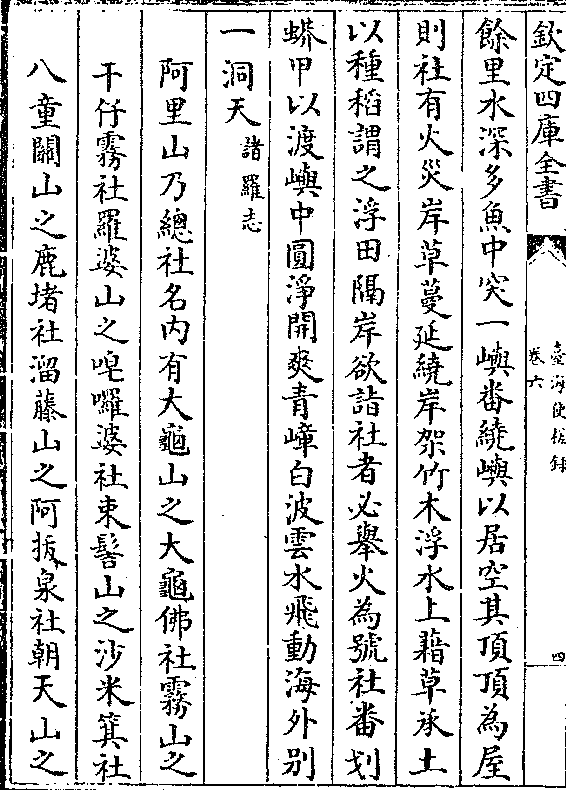 欽定四庫全書
臺海使槎錄
卷六
四
餘里水深多魚中突一嶼番繞嶼以居空其頂頂為屋
則社有火災岸草蔓延繞岸架竹木浮水上藉草承土
以種稻謂之浮田隔岸欲詣社者必舉火為號社番划
蟒甲以渡嶼中圓淨開爽青嶂白波雲水飛動海外别
一洞天諸羅志
阿里山乃總社名内有大龜山之大龜佛社霧山之
干仔霧社羅婆山之唣囉婆社束髻山之沙米箕社
八童關山之鹿堵社溜藤山之阿拔泉社朝天山之